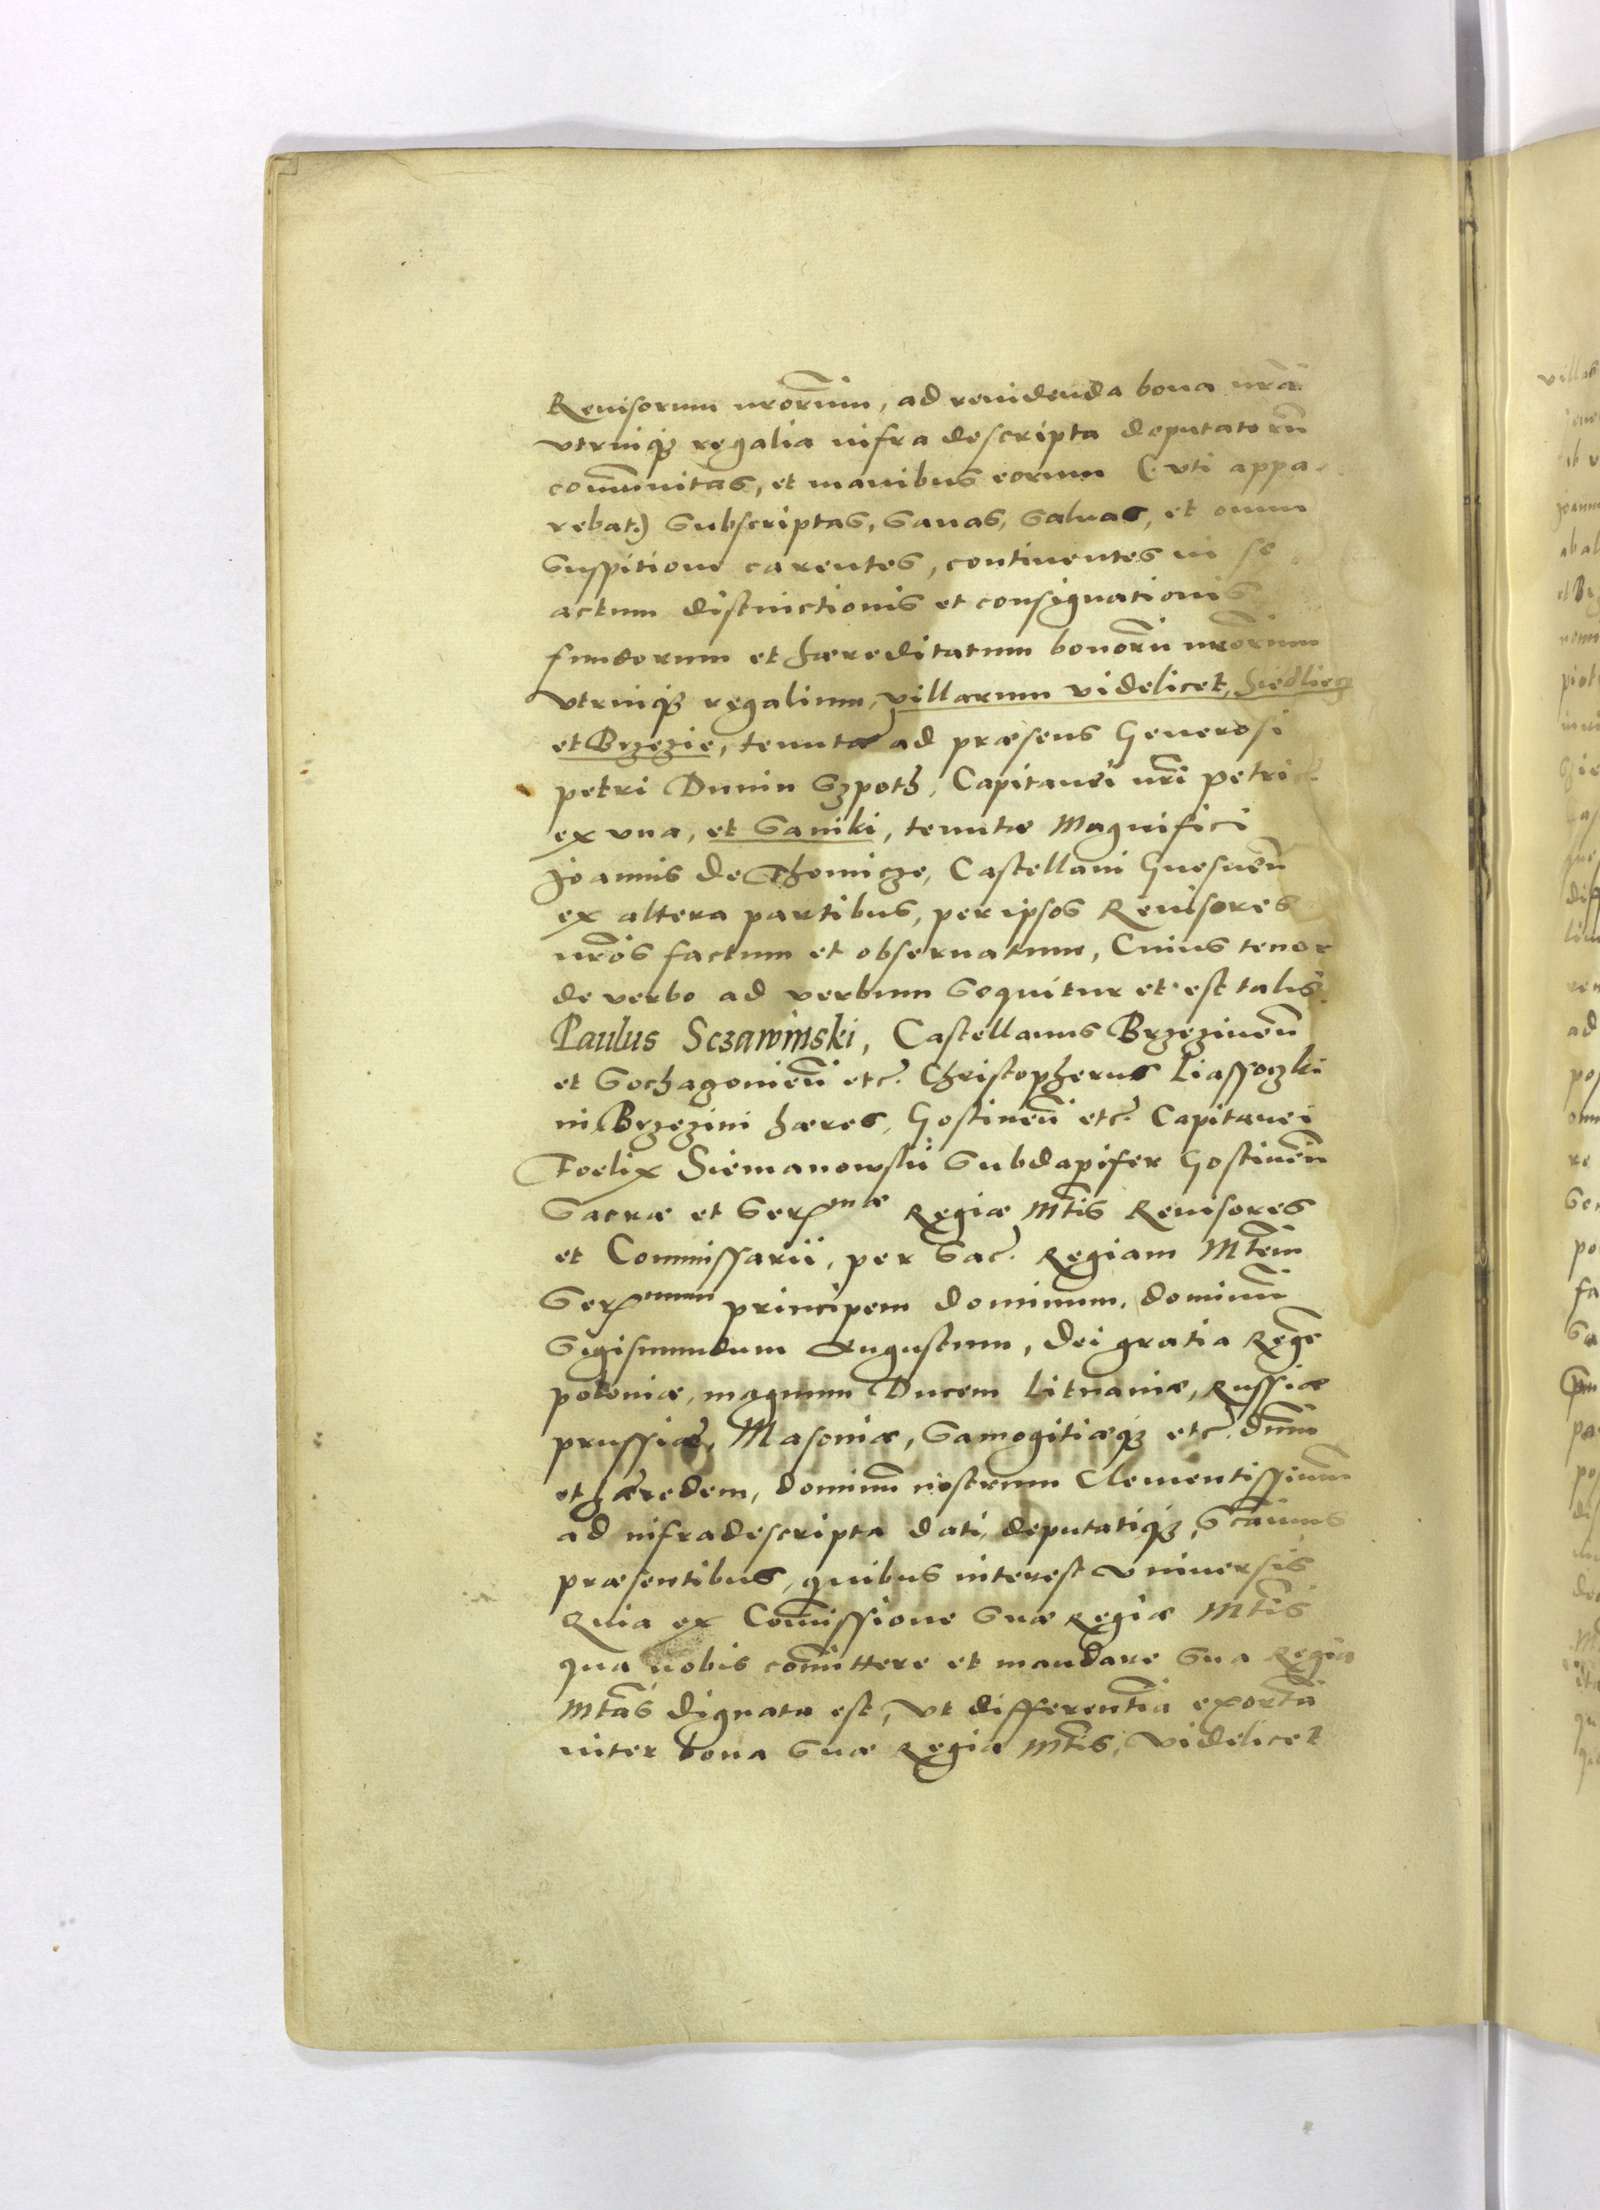 Reuisorum nrorum, ad reuidenda bona nra
vtrinq3 regalia infra descripta deputatorū
com̄unitas, et manibus eorum (: vti appa
rebat:) subscriptas, sanas, saluas, et omni
suspitione carentes, continentes in se
actum distinctionis et consignationis
fundorum et hæreditatum bonorū nrorum
vtrinq3 regalium, villarum videlicet, Siedliecz
et Brzezie, tenutæ ad præsens Generosi
petri Dunin Szpoth, Capitanei nri petric.
ex vna, et Saniki, tenutæ Magnifici
Joannis de Thomicze, Castellani Gnesnen̄
ex altera partibus, per ipsos Reuisores
nros factum et obseruatum, Cuius tenor
de verbo ad verbum sequitur et est talis.
Paulus Sczawinski, Castellanus Brzezinen̄
et Sochaczouien̄ etc. Christopherus Liassoczki
in Brzezini hæres, Gostinen̄ etc. Capitanei
Foelix Siemanowskii Subdapifer Gostinen̄
Sacræ et Serᵉⁿæ Regiæ Mtis Reuisores
et Commissarii, per Sac. Regiam Mtem
Serᵉⁿum principem dominum, dominū
Sigismundum Augustum, dei gratia Regē
poloniæ, magnum Ducem Lituaniæ, Russiæ
prussiæ, Masouiæ, Samogitiæq3 etc. dnm
et hæredem, dominū nostrum Clementissimū
ad infradescripta dati, deputatiq3, Sc̄imus
præsentibus, quibus interest vniuersis
Quia ex Com̄issione Suæ Regiæ Mtis
qua nobis com̄ittere et mandare Sua Regia
Mtas dignata est, Vt differentiā exortā
inter bona Suæ Regiæ Mtis, videlicet